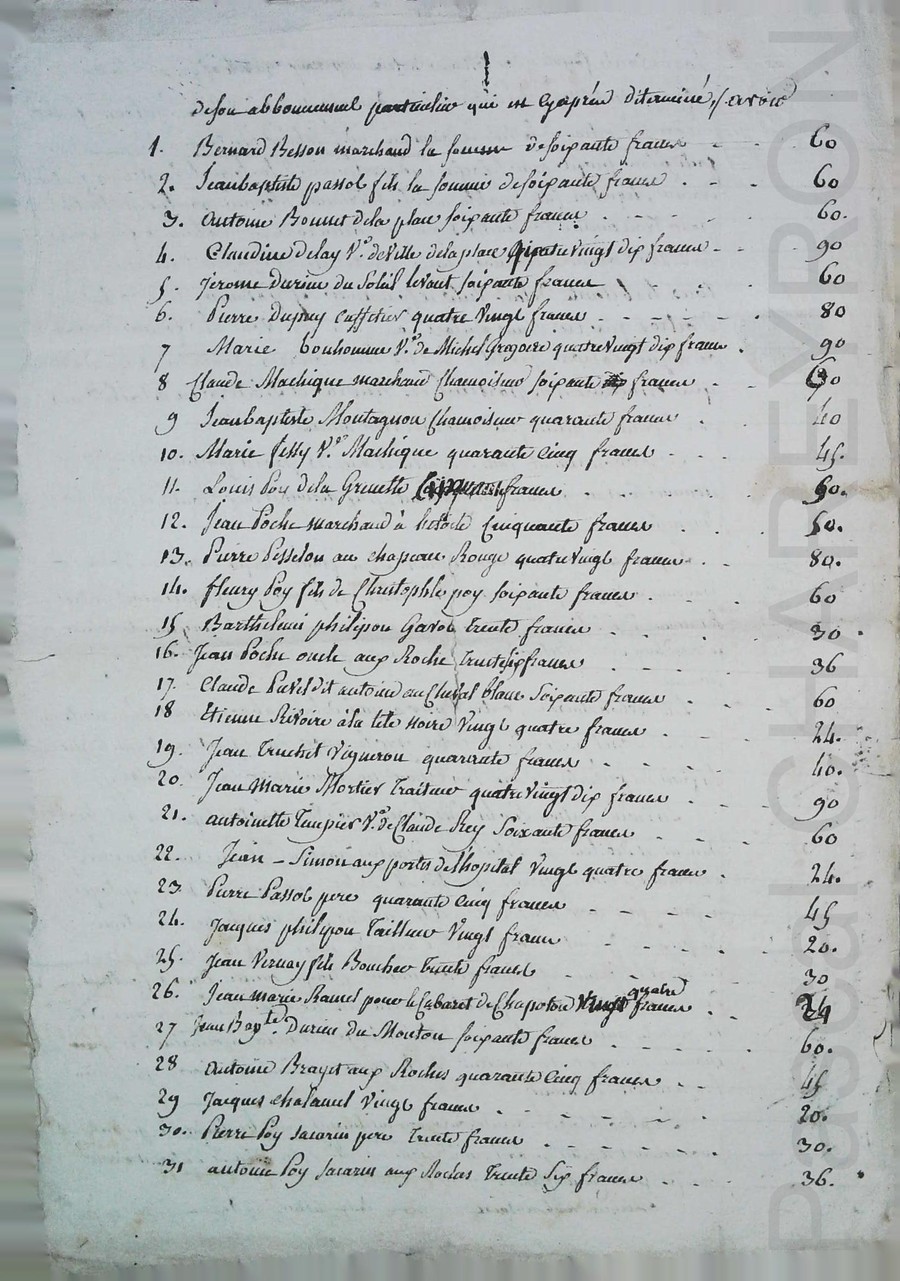 de son abbonnement particulier qui est cy après déterminé, savoir
1. Bernard Besson marchand la somme de soixante francs - - . 60
2. Jeanbaptiste passot fils la somme de soixante francs . - . 60
3. Antoine Bonnet dela place soixante francs . - - - . 60.
4. Claudine delay Ve. deville dela place quatre vingt dix francs - - 90
5. Jerome Durieu du Soleil levant soixante francs . . 60
6. Pierre Dupuy caffetier quatre vingt francs - - - - . 80
7 Marie bonhomme Ve. de Michel Gregoire quatre vingt dix francs . 90
8 Claude Machique marchand Chamoiseur soixante francs - . 60
9 Jeanbaptiste Montagnon Chamoiseur quarante francs . . 40
10. Marie fessy Ve. Machique quarante cinq francs - . . 45.
11. Louis Poy dela Grenette francs . . . . 60.
12. Jean Poche marchand à Cinquante francs . . . 50.
13. Pierre Pesselon au chapeau Rouge quatre vingt francs . . 80.
14. fleury Poy fils de Christophle poy soixante francs . - . 60
15 Barthelemi philipon Gavot trente francs . . . 30 .
16. Jean Poche oncle aux Roche trente six francs . - - . 36
17. Claude dit antoine au Cheval blanc Soixante francs . . 60
18 Etienne Rivoire à la tete noire vingt quatre francs . - . 24.
19. Jean Truchet Vigneron quarante francs . . . 40.
20. Jean Marie Mortier Traiteur quatre vingt dix francs . - . 90
21. antoinette Ve. de Claude Rey Soixante francs - - . 60
22. Jean - Simon aux portes de l'hopital vingt quatre francs . 24.
23. Pierre Passot pere quarante cinq francs . - - . 45
24. Jacques philipon Tailleur vingt francs . - - . 20.
25. Jean Vernay fils Boucher trente francs . - . 30
26. Jean marie Ramel pour le Cabaret de Chapoton vingt quatre francs . . 24
27 Jean Bapte. Durieu du Mouton soixante francs . - . 60.
28 Antoine Brayet aux Roches quarante cinq francs . - . 45
29 Jacques chalamel vingt francs . - . - - . 20.
30. Pierre Poy Jacarin pere trente francs . - - - . 30.
31 antoine Poy Jacarin aux Roches trente six francs . . . 36. .
Pascal CHAREYRON